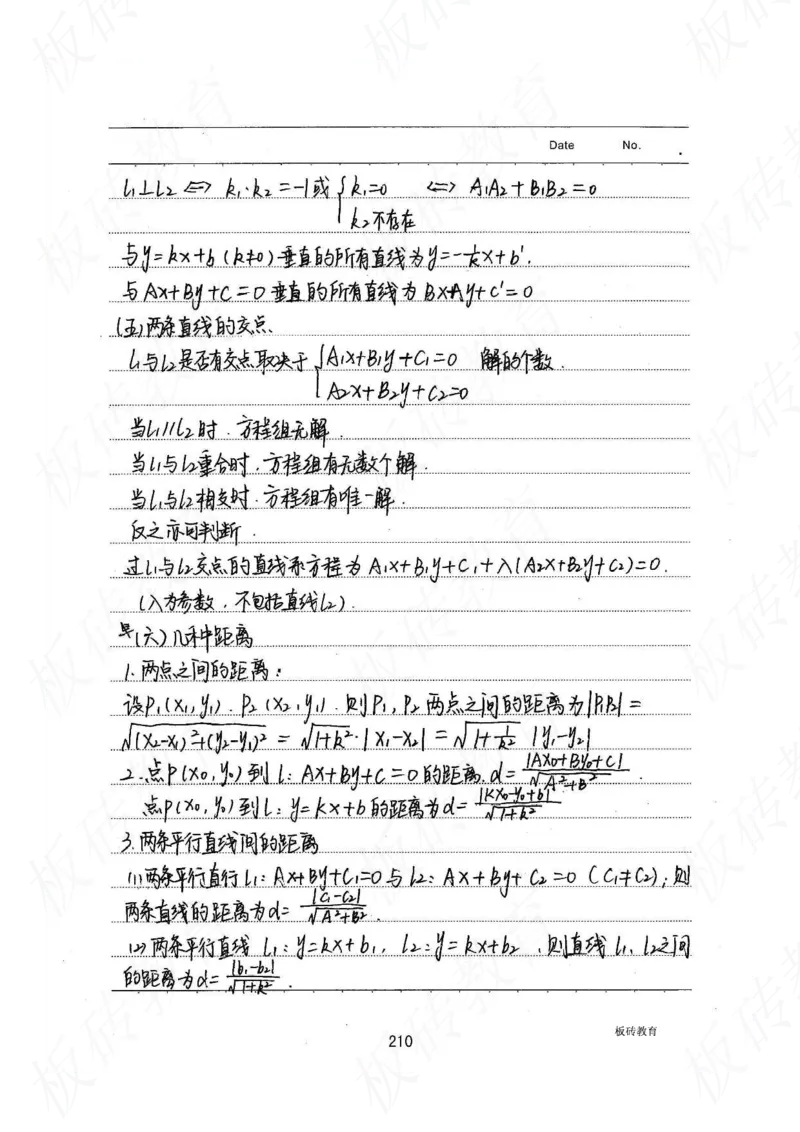 Date No.
l₁⊥l₂ ⇔ k₁·k₂=-1或{k₁=0 ⇔ A₁A₂+B₁B₂=0
k₂不存在
与y=kx+b(k≠0)垂直的所有直线为y=-1/k x+b'.
与Ax+By+C=0垂直的所有直线为Bx-Ay+C'=0
(五)两条直线的交点
l₁与l₂是否有交点取决于{A₁x+B₁y+C₁=0 解的个数.
A₂x+B₂y+C₂=0
当l₁//l₂时.方程组无解.
当l₁与l₂重合时.方程组有无数个解.
当l₁与l₂相交时.方程组有唯一解.
反之亦可判断.
过l₁与l₂交点的直线系方程为A₁x+B₁y+C₁+λ(A₂x+B₂y+C₂)=0.
(λ为参数,不包括直线l₂).
(六)几种中距离
1.两点之间的距离:
设P₁(x₁,y₁).P₂(x₂,y₁).则P₁,P₂两点之间的距离为|P₁P₂|=
√((x₂-x₁)²+(y₂-y₁)²) = √(1+k²)·|x₁-x₂| = √(1+1/k²) |y₁-y₂|
2.点P(x₀,y₀)到l:Ax+By+C=0的距离.d=|Ax₀+By₀+C|/√(A²+B²).
点P(x₀,y₀)到l:y=kx+b的距离为d=|kx₀-y₀+b|/√(1+k²)
3.两条平行直线间的距离
(1)两条平行直行l₁:Ax+By+C₁=0与l₂:Ax+By+C₂=0(C₁≠C₂);则
两条直线的距离为d=|C₁-C₂|/√(A²+B²).
(2)两条平行直线l₁:y=kx+b₁,l₂:y=kx+b₂,则直线l₁、l₂之间
的距离为d=|b₁-b₂|/√(1+k²).
板砖教育
210